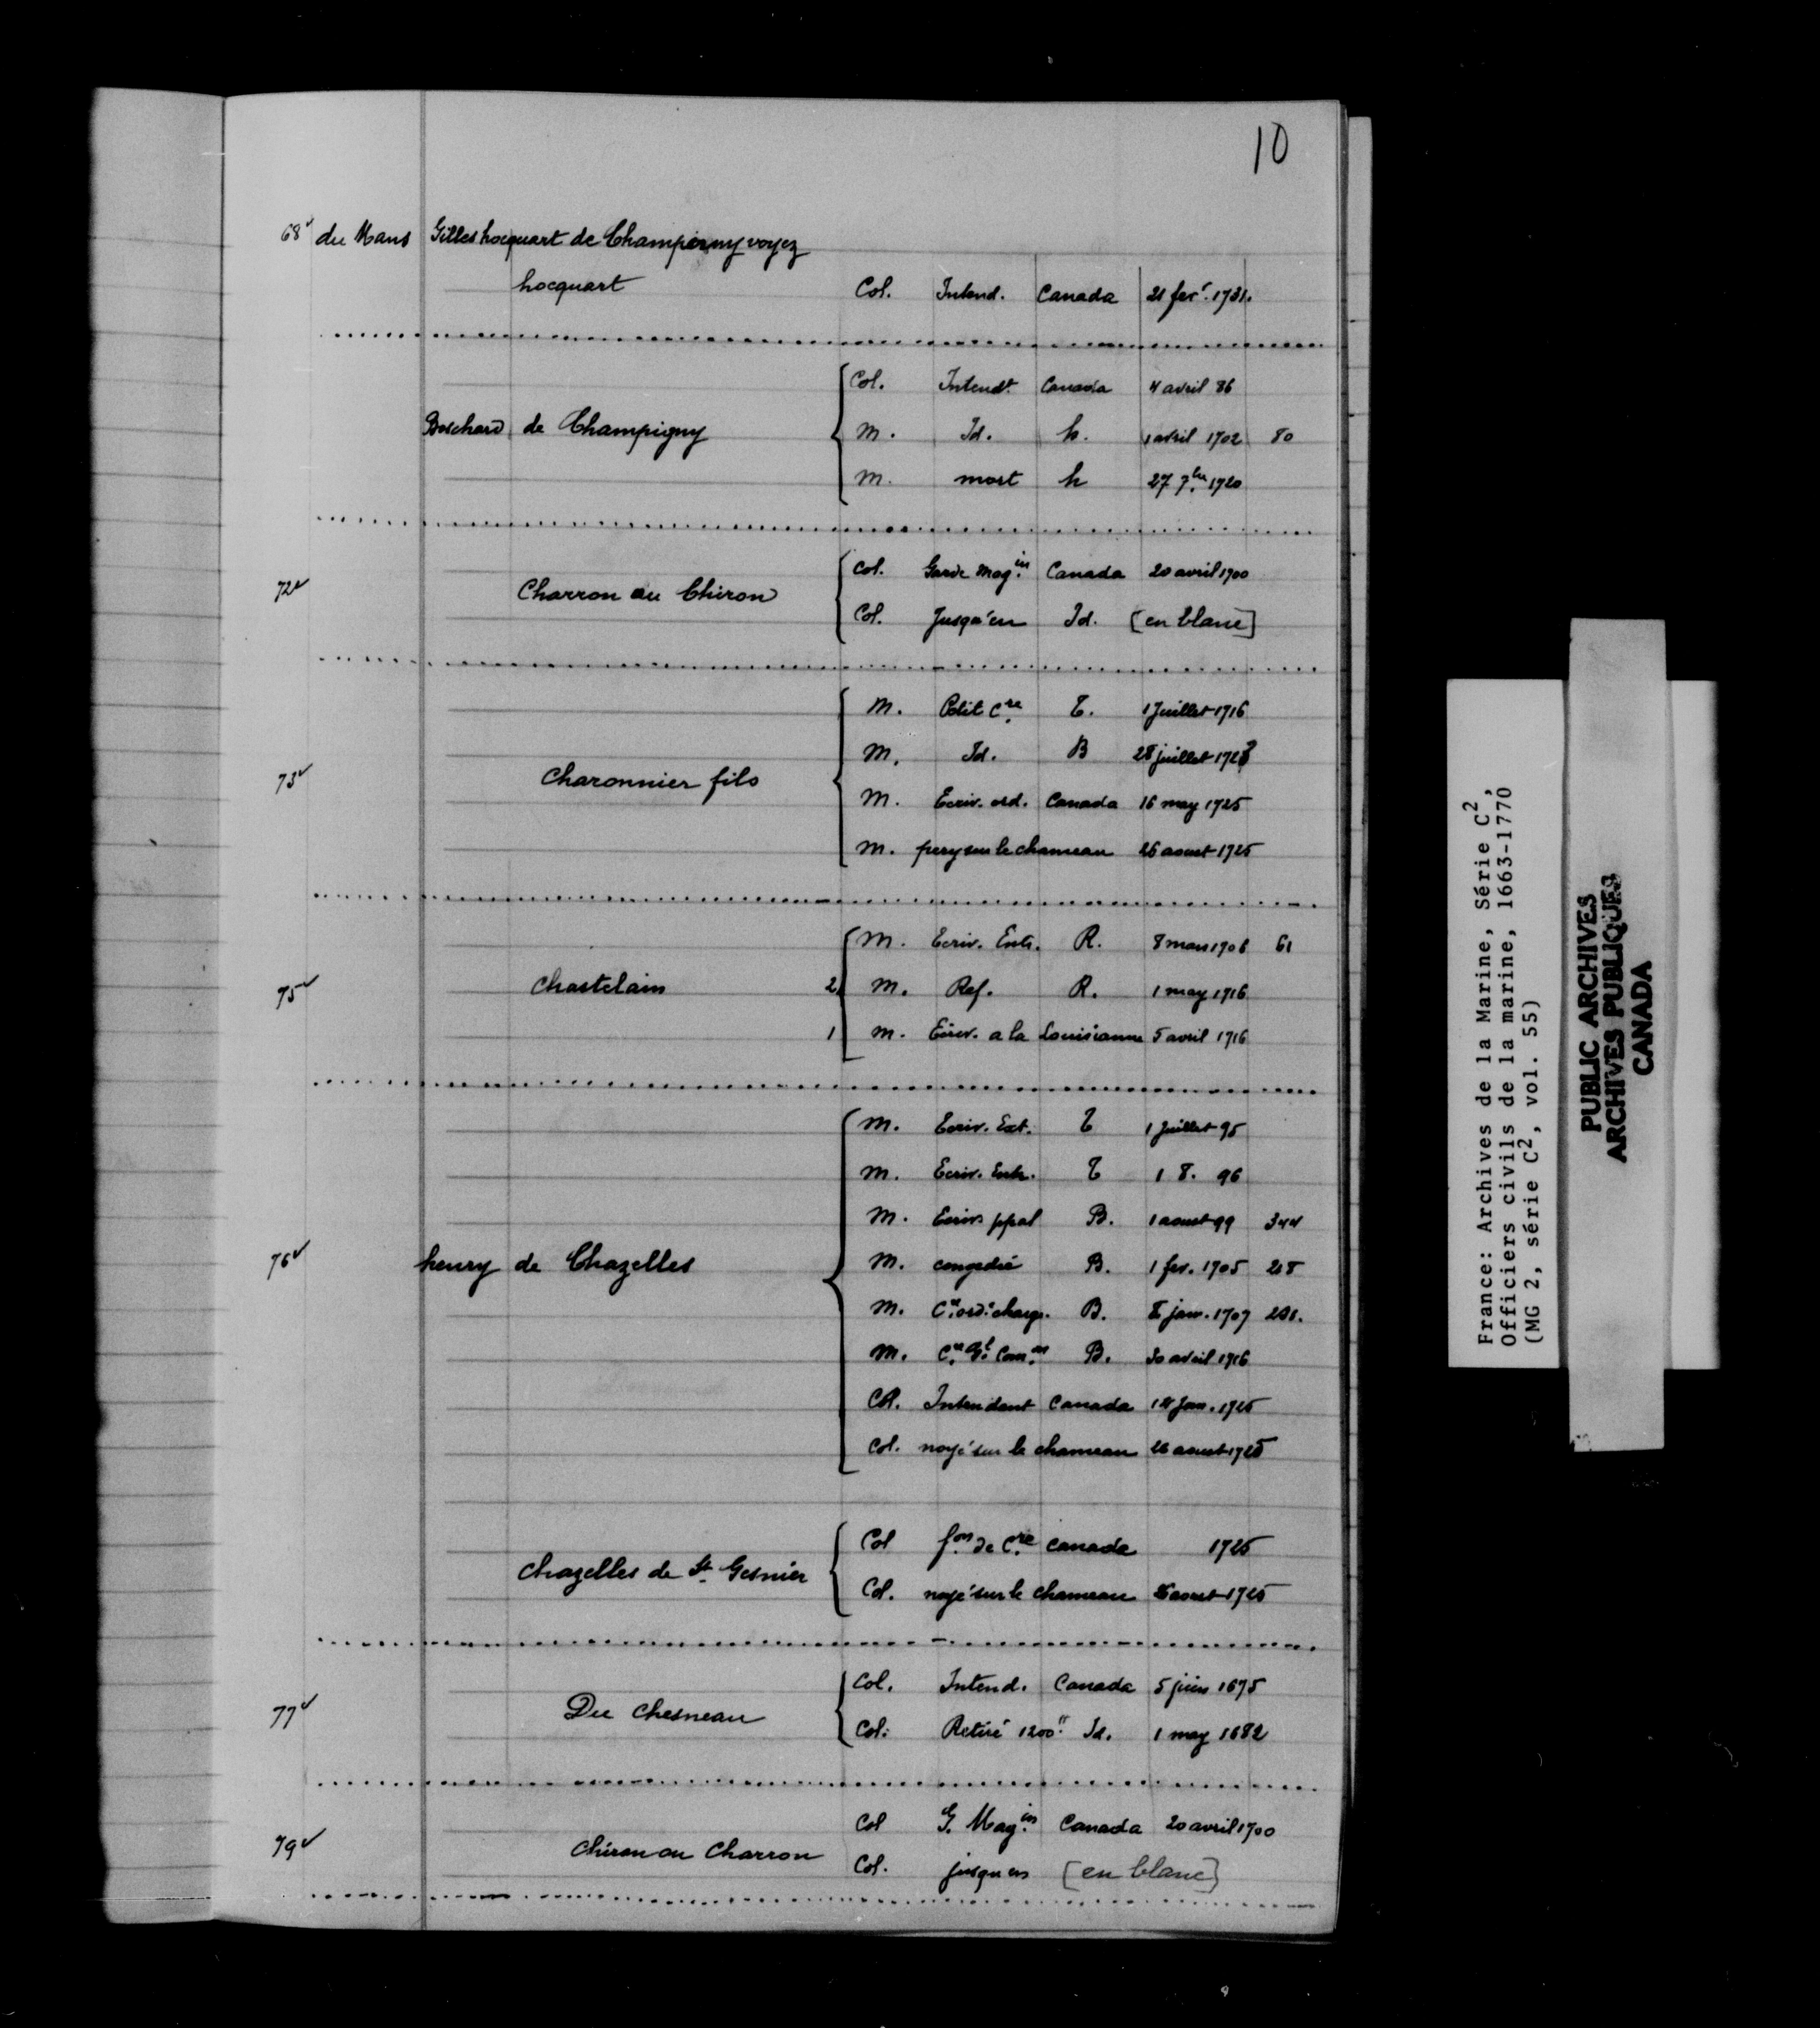 10
68v du Mans Gilles hocquart de Champigny voyez
hocquart Col. Intend. Canada 21 fevr. 1731.
Col. Intendt. Canada 4 avril 86
Bochard de Champigny M. Id. h. 1 avril 1702 80
M. mort h 27 7bre 1720
72v Charron ou Chiron Col. Garde Magin Canada 20 avril 1700
Col. Jusqu'en Id. [en blanc]
M. Petit Cre T. 1 Juillet 1716
M. Id. B 28 juillet 172
73v Charonnier fils M. Ecriv. ord. Canada 16 may 1725
M. pery sur le chameau 26 aoust 1725
M. Ecriv. Entr. R. 8 mars 1706 61
75v Chastelain 2 M. Ref. R. 1 may 1716
1 M. Ecriv. a la Louisianne 5 avril 1716
M. Ecriv. Ext. T 1 Juillet 95
M. Ecriv. Entr. T 1 8. 96
M. Ecriv. ppal B. 1 aoust 99 344
76v henry de Chazelles M. congedié B. 1 fev. 1705 218
M. Cre ord. charge. B. 8 janv. 1707 201.
M. Cre Gl. Com.on B. 30 avril 1716
Col. Intendant Canada 14 Janv. 1725
Col. noyé sur le chameau 26 aoust 1725
Chazelles de St. Gesnier Col fon de Cre Canada 1725
Col. noyé sur le Chameau 26 aoust 1725
77v Du Chesneau Col. Intend. Canada 5 juin 1675
Col. Retiré 1200" Id. 1 may 1682
79v Chiron ou Charron Col G. Magin Canada 20 avril 1700
Col. jusquen [en blanc]
France: Archives de la Marine, Série C2,
Officiers civils de la marine, 1663-1770
(MG 2, série C2, vol. 55)
PUBLIC ARCHIVES
ARCHIVES PUBLIQUES
CANADA